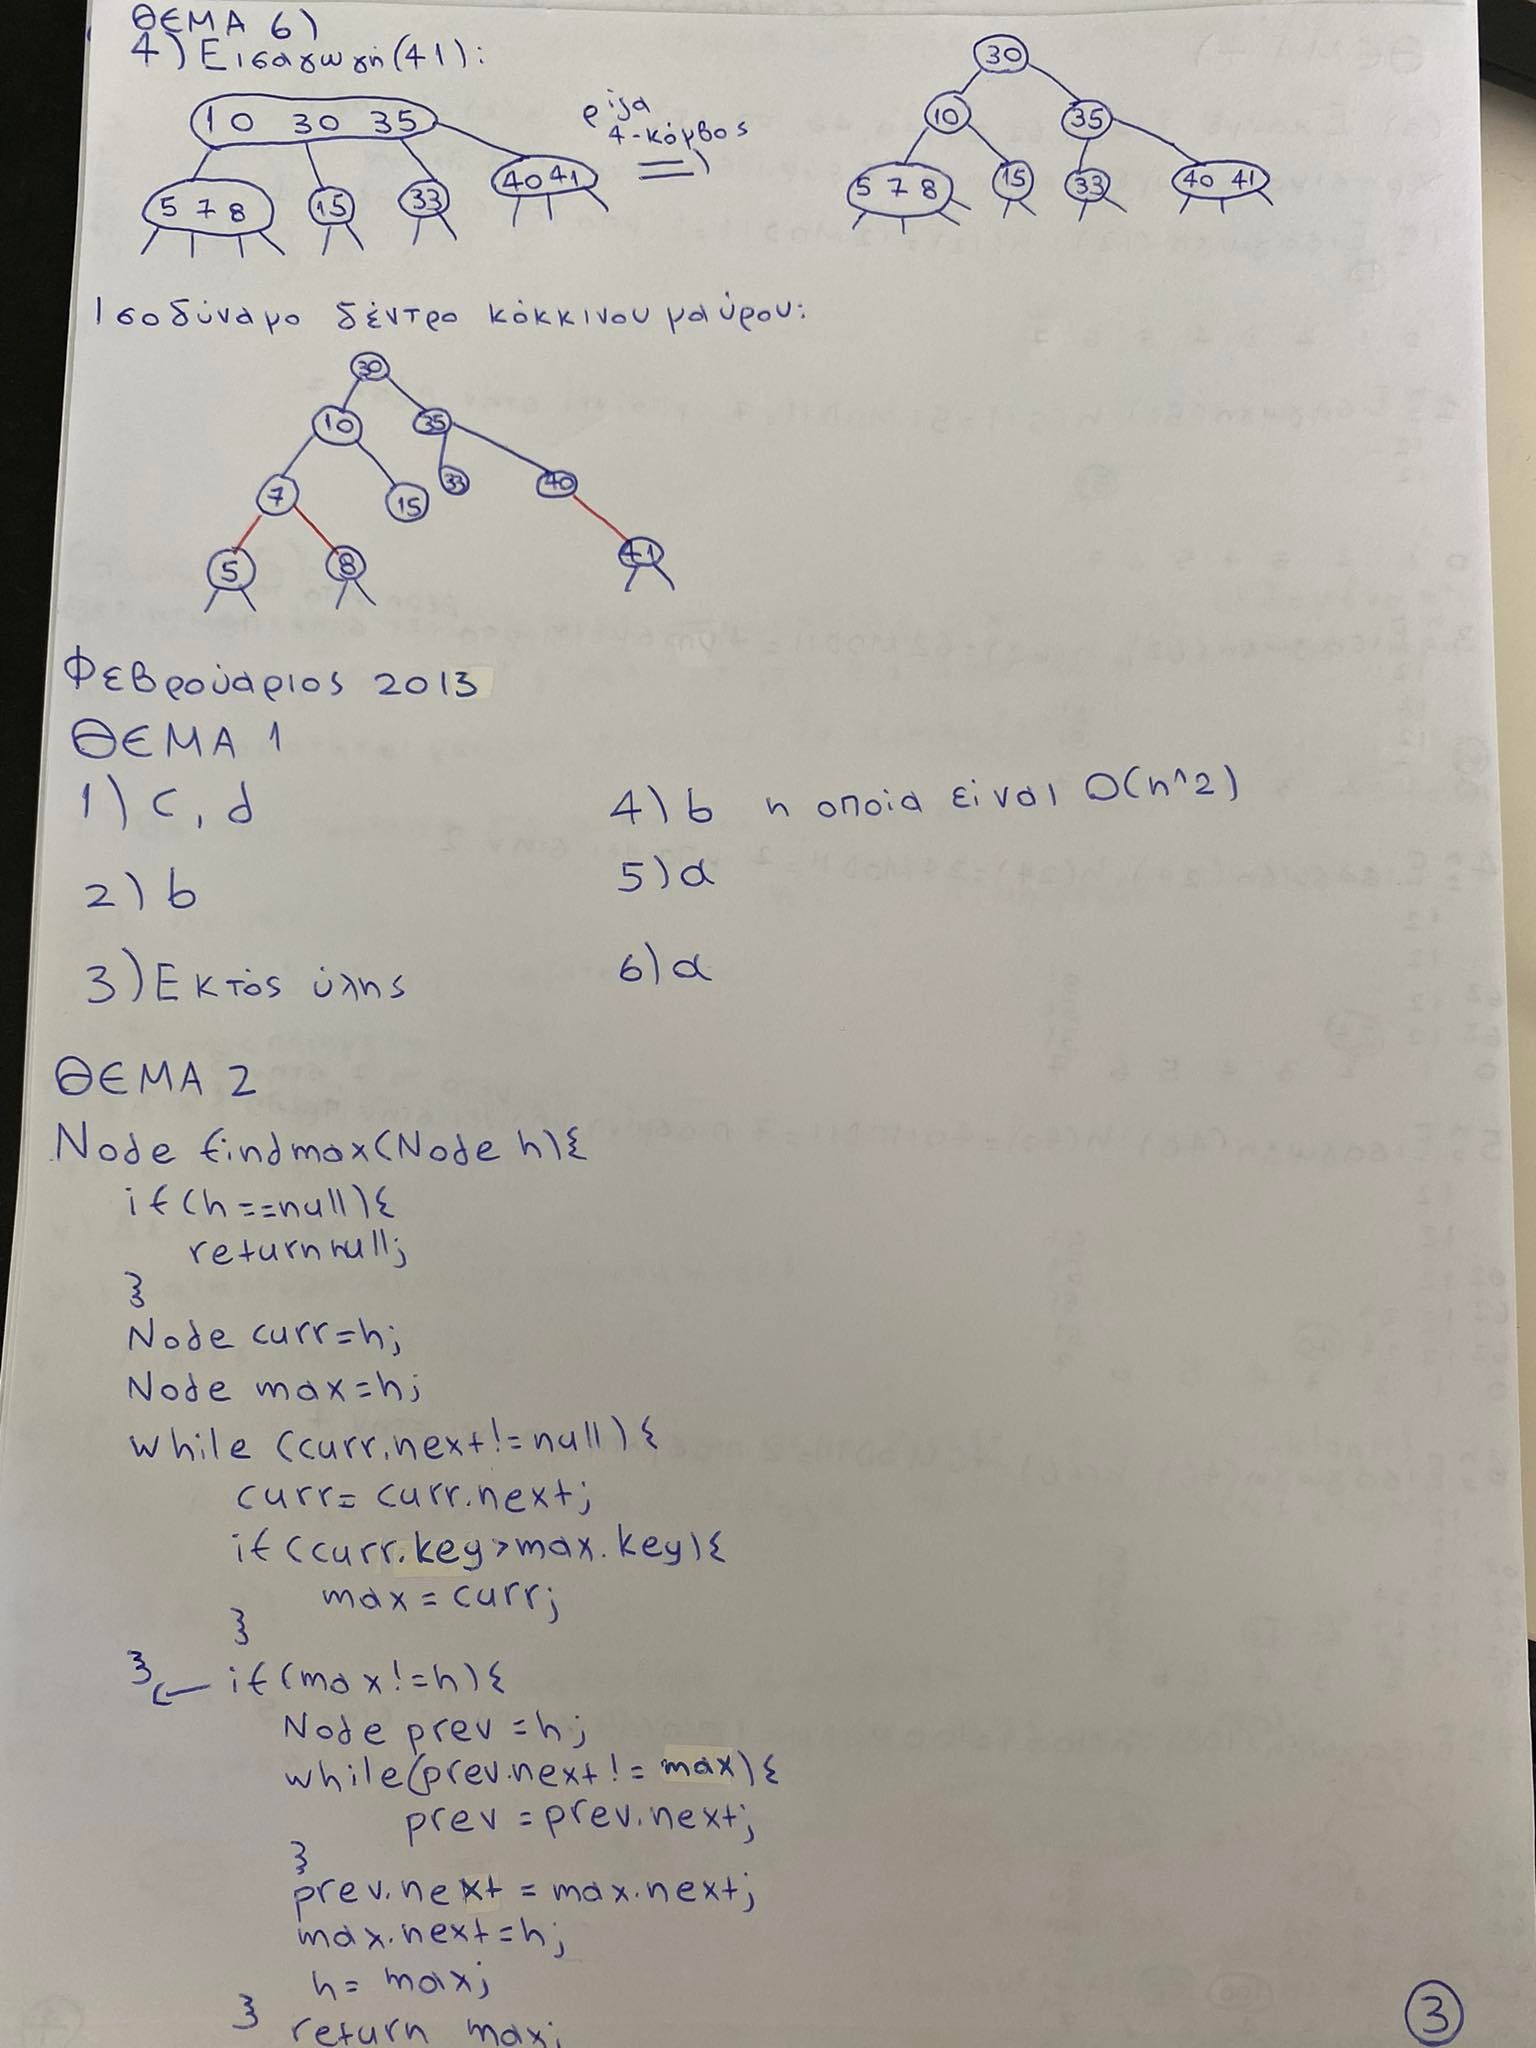 ΘΕΜΑ 6)
4) Εισαγωγή(41):
10 30 35
5 7 8
15
33
40 41
ρίζα
4-κόμβος
=>
30
10
35
5 7 8
15
33
40 41
Ισοδύναμο δέντρο κόκκινου μαύρου:
30
10
35
7
15
33
40
5
8
41
Φεβρουάριος 2013
ΘΕΜΑ 1
1) c, d
4) b η οποία είναι O(n^2)
2) b
5) a
3) Εκτός ύλης
6) a
ΘΕΜΑ 2
Node findmax(Node h){
if(h==null){
return null;
}
Node curr=h;
Node max=h;
while (curr.next!=null){
curr= curr.next;
if(curr.key>max.key){
max=curr;
}
} ← if(max!=h){
Node prev=h;
while(prev.next!=max){
prev=prev.next;
}
prev.next=max.next;
max.next=h;
h= max;
} return max;
3